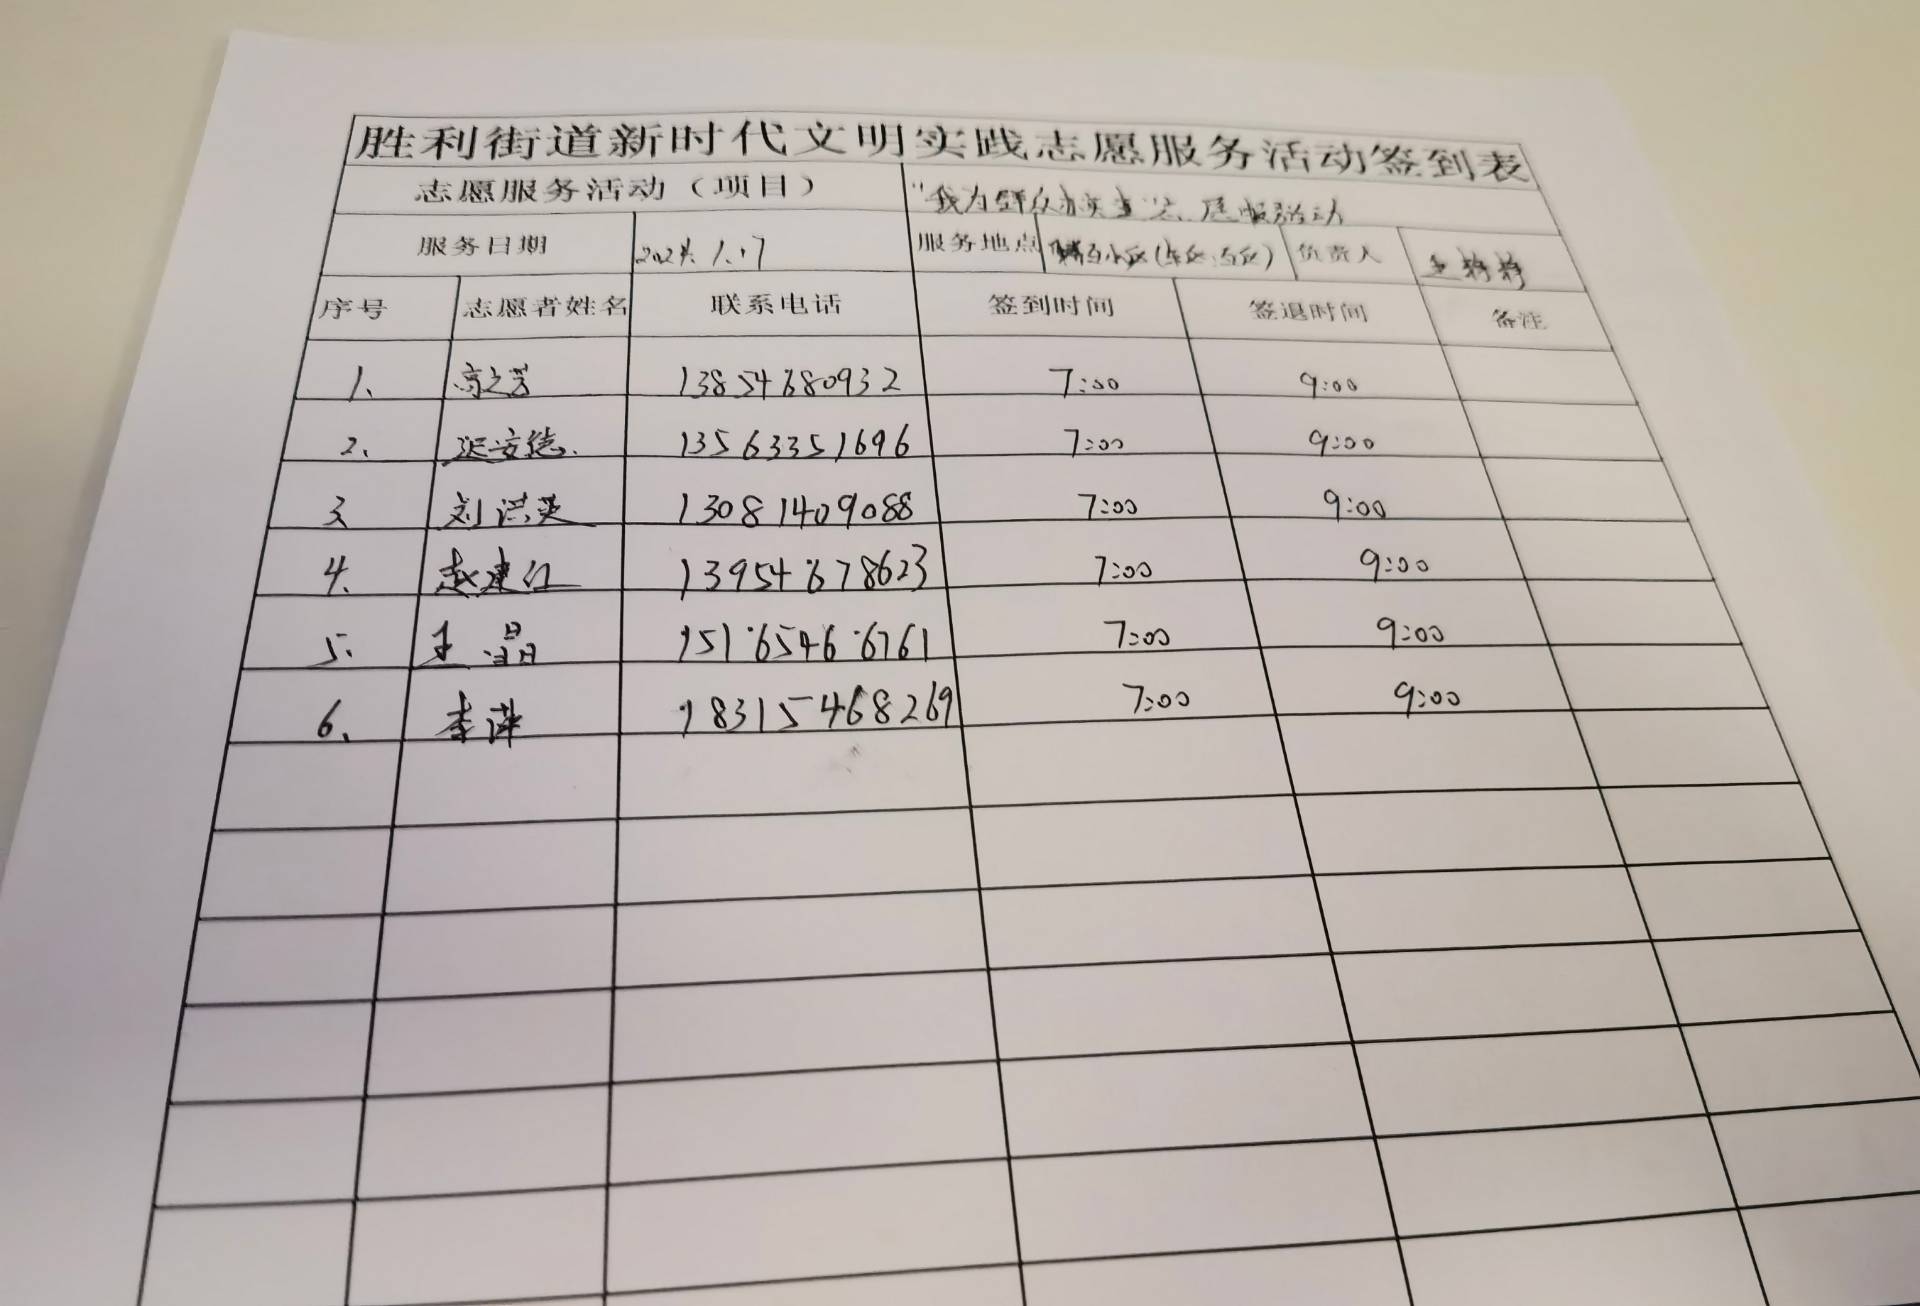 胜利街道新时代文明实践志愿服务活动签到表
志愿服务活动（项目） "我为群众办实事"志愿服务活动
服务日期 2024.1.17 服务地点 负责人
序号 志愿者姓名 联系电话 签到时间 签退时间 备注
1、 13854680932 7:00 9:00
2、 13563351696 7:00 9:00
3 刘洪英 13081409088 7:00 9:00
4、 赵建红 13954678623 7:00 9:00
5、 王晶 15165466761 7:00 9:00
6、 李萍 18315468269 7:00 9:00